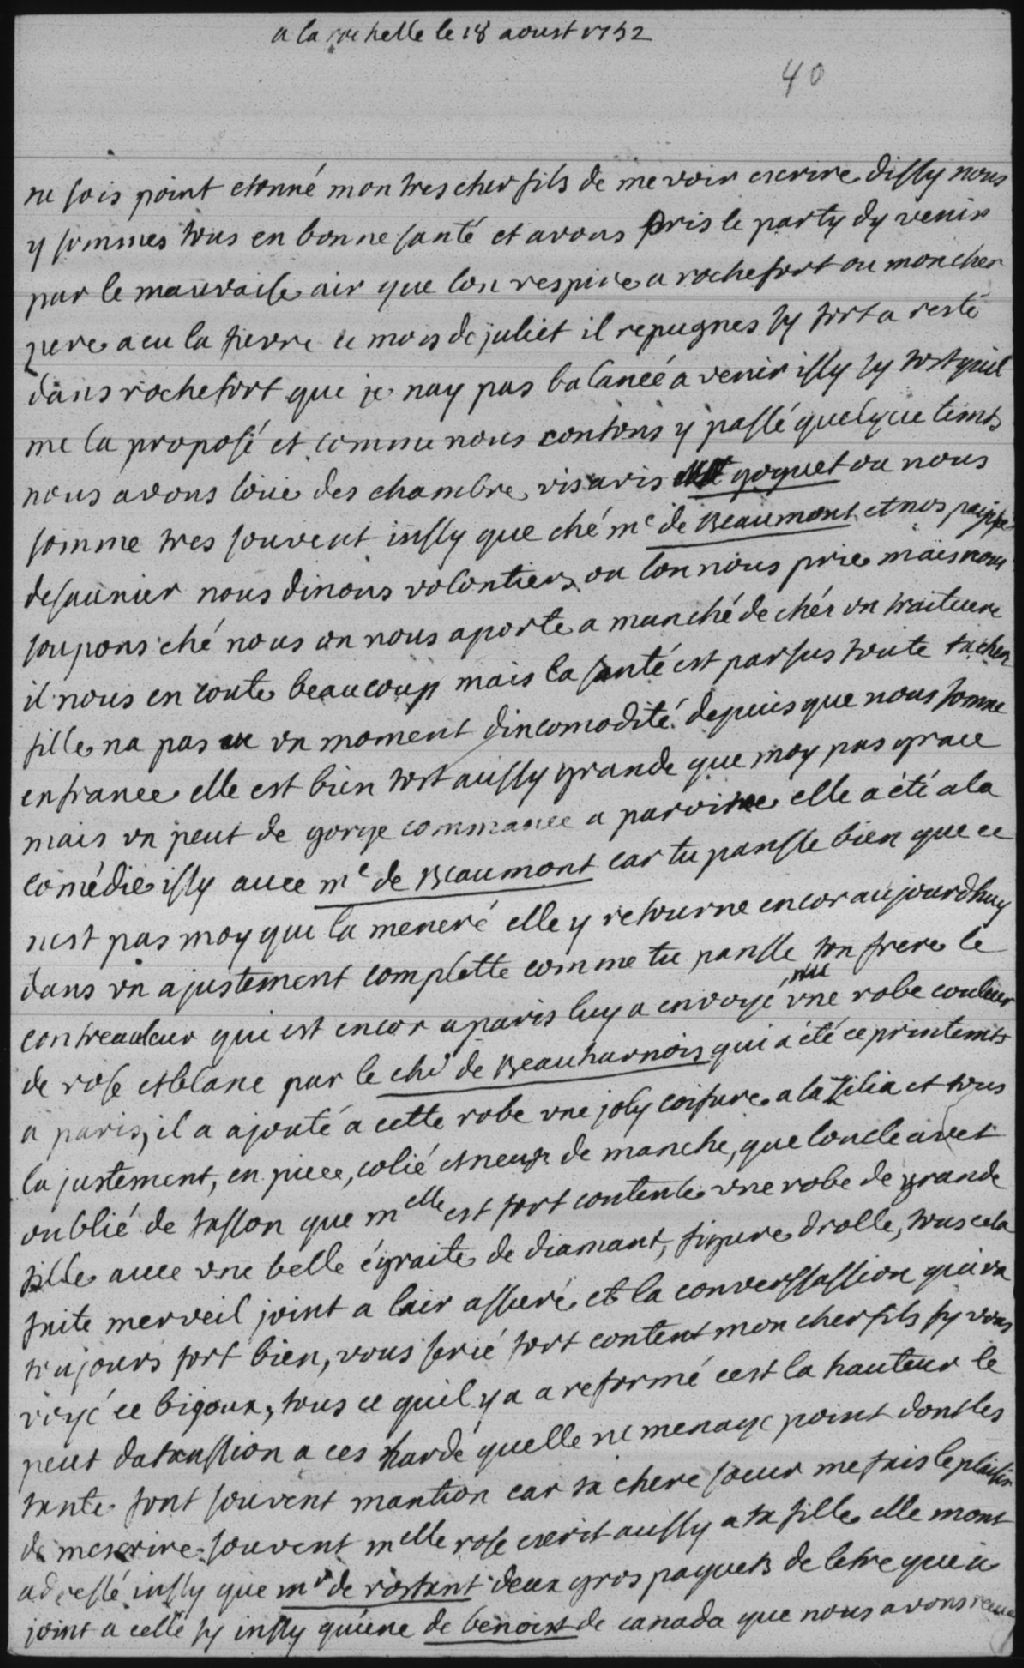 a la rochelle le 18 aoust 1752
40
ne sois point etonné mon tres cher fils de me voir escrire dissy nous
y sommes tous en bonne santé et avons pris le party dy venir
par le mauvaise air que lon respire a rochefort ou mon cher
pere a eu la fievre le mois de juliet il repugnes sy fort a resté
dans rochefort que je nay pas balancé a venir issy sy tost quil
me la proposé et comme nous contons y passé quelque temts
nous avons loué des chambre vis a vis goguet ou nous
somme tres souvent inssy que ché mr de Beaumont et nos
desaunier nous dinons volontiers ou lon nous prie mais nous
soupons ché nous on nous aporte a manché de chés un traiteure
il nous en coute beaucoup mais la santé est parsus toute ta cher
fille na pas eu un moment dincomodité depuis que nous somme
en france elle est bien tost aussy grande que moy pas grace
mais un peut de gorge commance a paroitre elle a été a la
comédie issy avec me de Beaumont car tu pansse bien que ce
nest pas moy qui la meneré elle y retourne encor aujourdhuy
dans un ajustement complette comme tu pansse ton frere le
contreauleur qui est encor a paris luy a envoyé une robe couleur
de rose et blanc par le cher de Beauharnois qui a été ce printemts
a paris, il a ajouté a cette robe une joly coifure a la silia et tous
lajustement, en piece, colié et neux de manche, que loncle avet
oublié de fasson que melle est fort contente une robe de grande
fille avec une belle égraite de diamant, figure drolle, tous cela
faite merveil joint a lair assuré et la converssassion qui va
toujours fort bien, vous serié fort content mon cher fils sy vous
voyé ce bigoux, tous ce quil y a a reformé cest la hauteur le
peut datanssion a ces hardé quelle ne menage point dont les
tante font souvent mantion car ta chere soeur me fais le plaisir
de mescrire souvent melle rose escrit aussy a ta fille elle mont
adressé inssy que md de rostant deux gros paquets de letre que jai
joint a celle sy inssy quune de benoist de canada que nous avons recue